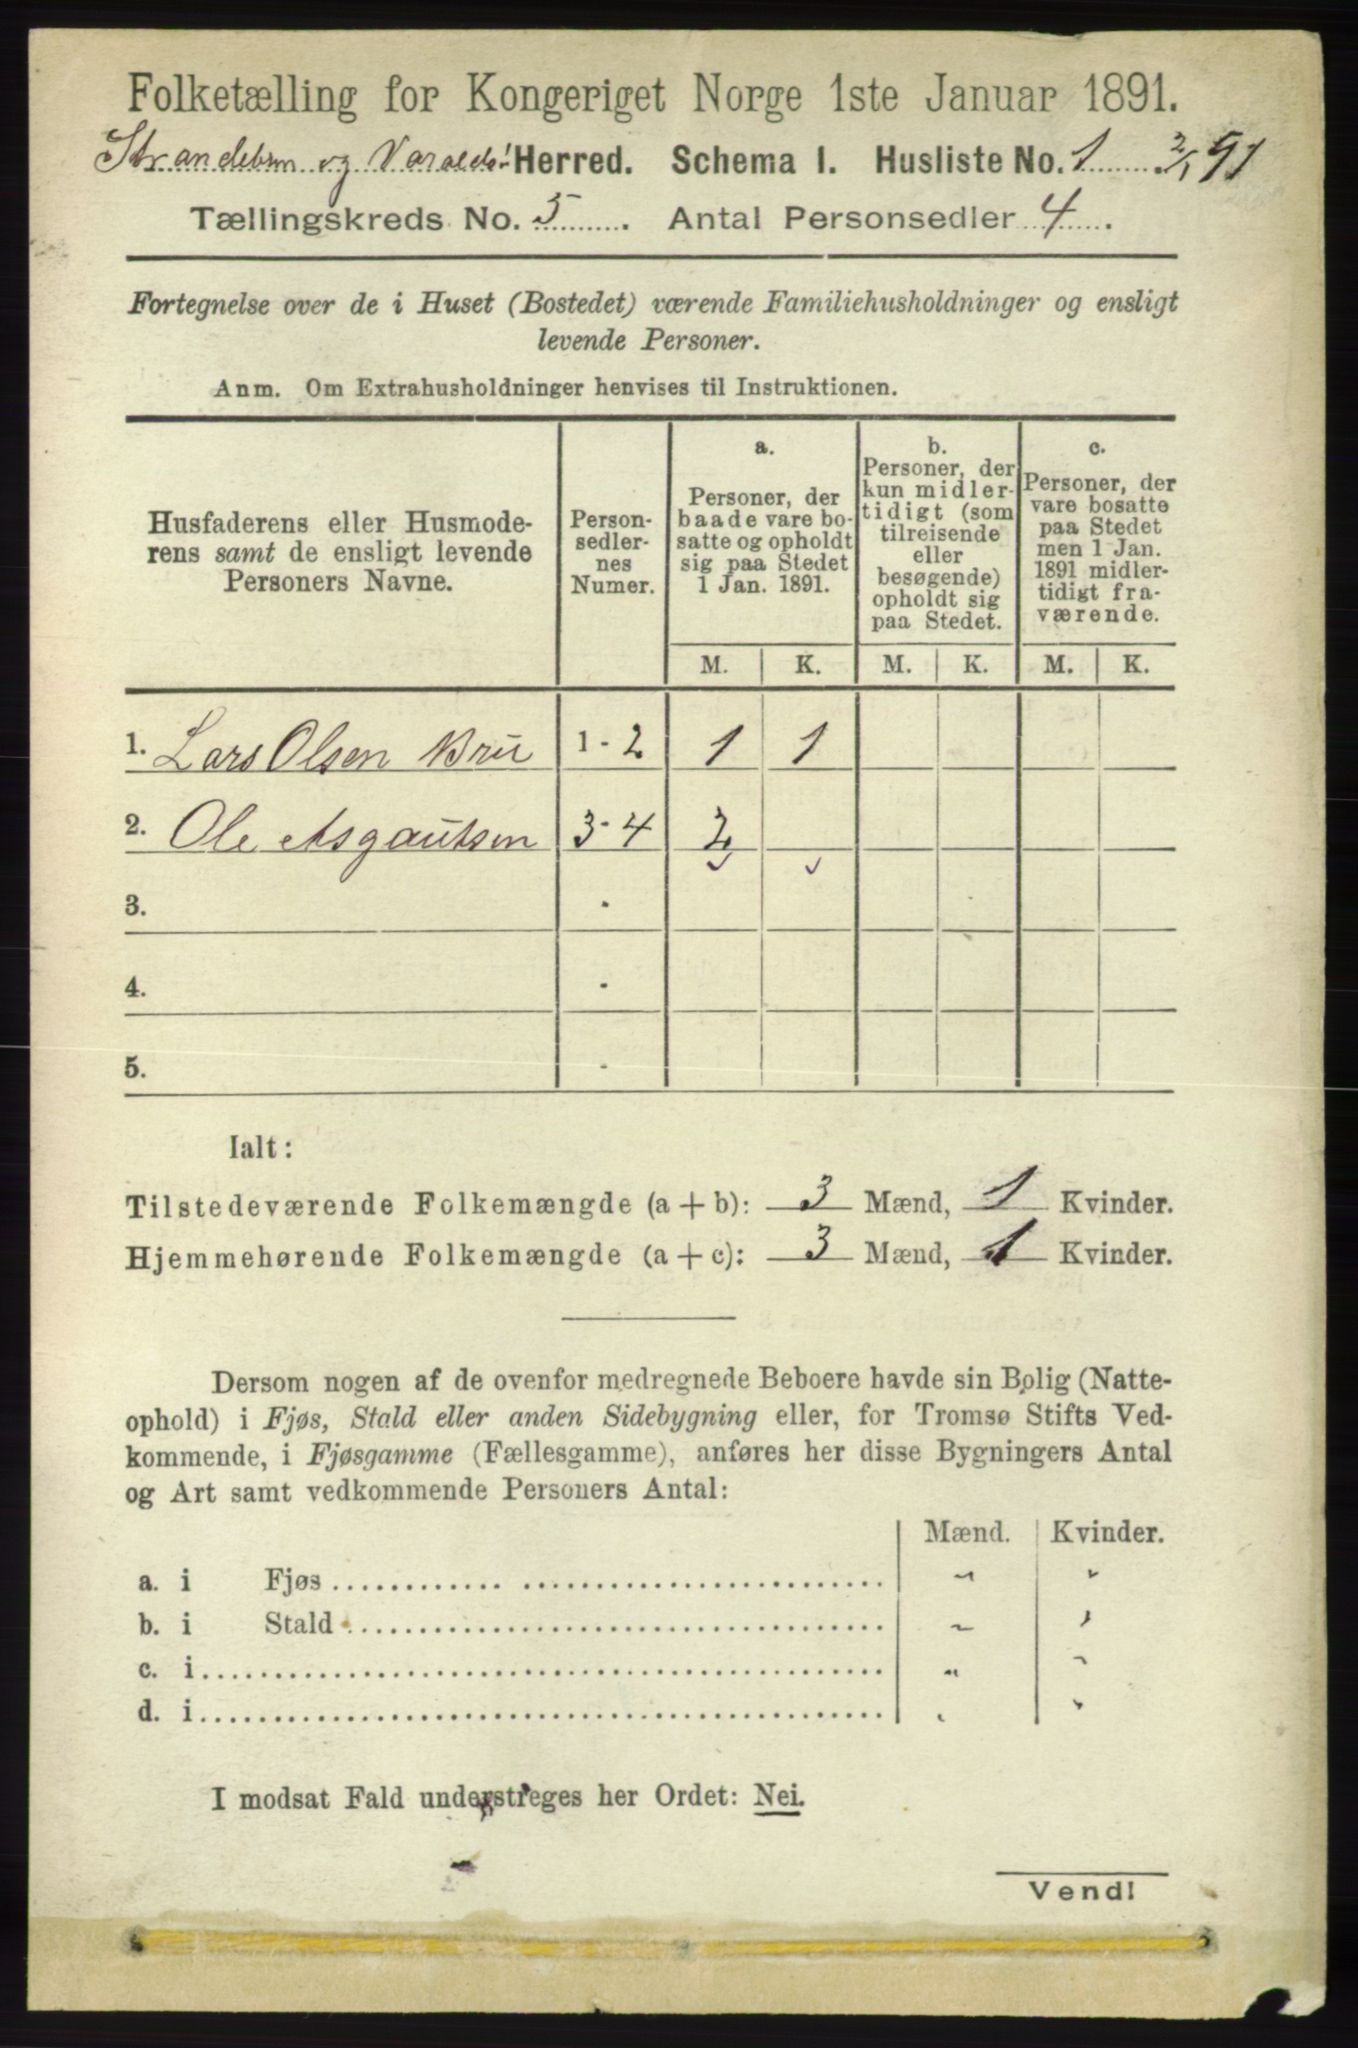 Folketælling for Kongeriget Norge 1ste Januar 1891.
Strandebm og Varalds! Herred. Schema I. Husliste No. 1 2/1 91
Tællingskreds No. 5. Antal Personsedler 4.
Fortegnelse over de i Huset (Bostedet) værende Familiehusholdninger og ensligt
levende Personer.
Anm. Om Extrahusholdninger henvises til Instruktionen.
Husfaderens eller Husmode-
rens samt de ensligt levende
Personers Navne.
Person-
sedler-
nes
Numer.
a.
Personer, der
baade vare bo-
satte og opholdt
sig paa Stedet
1 Jan. 1891.
b.
Personer, der
kun midler-
tidigt (som
tilreisende
eller
besøgende)
opholdt sig
paa Stedet.
c.
Personer, der
vare bosatte
paa Stedet
men 1 Jan.
1891 midler-
tidigt fra-
værende.
M. K. M. K. M. K.
1. Lars Olsen Bru 1 - 2 1 1
2. Ole Asgautsen 3 - 4 2
3. -
4. -
5. -
Ialt:
Tilstedeværende Folkemængde (a + b): 3 Mænd, 1 Kvinder.
Hjemmehørende Folkemængde (a + c): 3 Mænd, 1 Kvinder.
Dersom nogen af de ovenfor medregnede Beboere havde sin Bolig (Natte-
ophold) i Fjøs, Stald eller anden Sidebygning eller, for Tromsø Stifts Ved-
kommende, i Fjøsgamme (Fællesgamme), anføres her disse Bygningers Antal
og Art samt vedkommende Personers Antal:
Mænd. Kvinder.
a. i Fjøs
b. i Stald
c. i
d. i
I modsat Fald understreges her Ordet: Nei.
Vend!